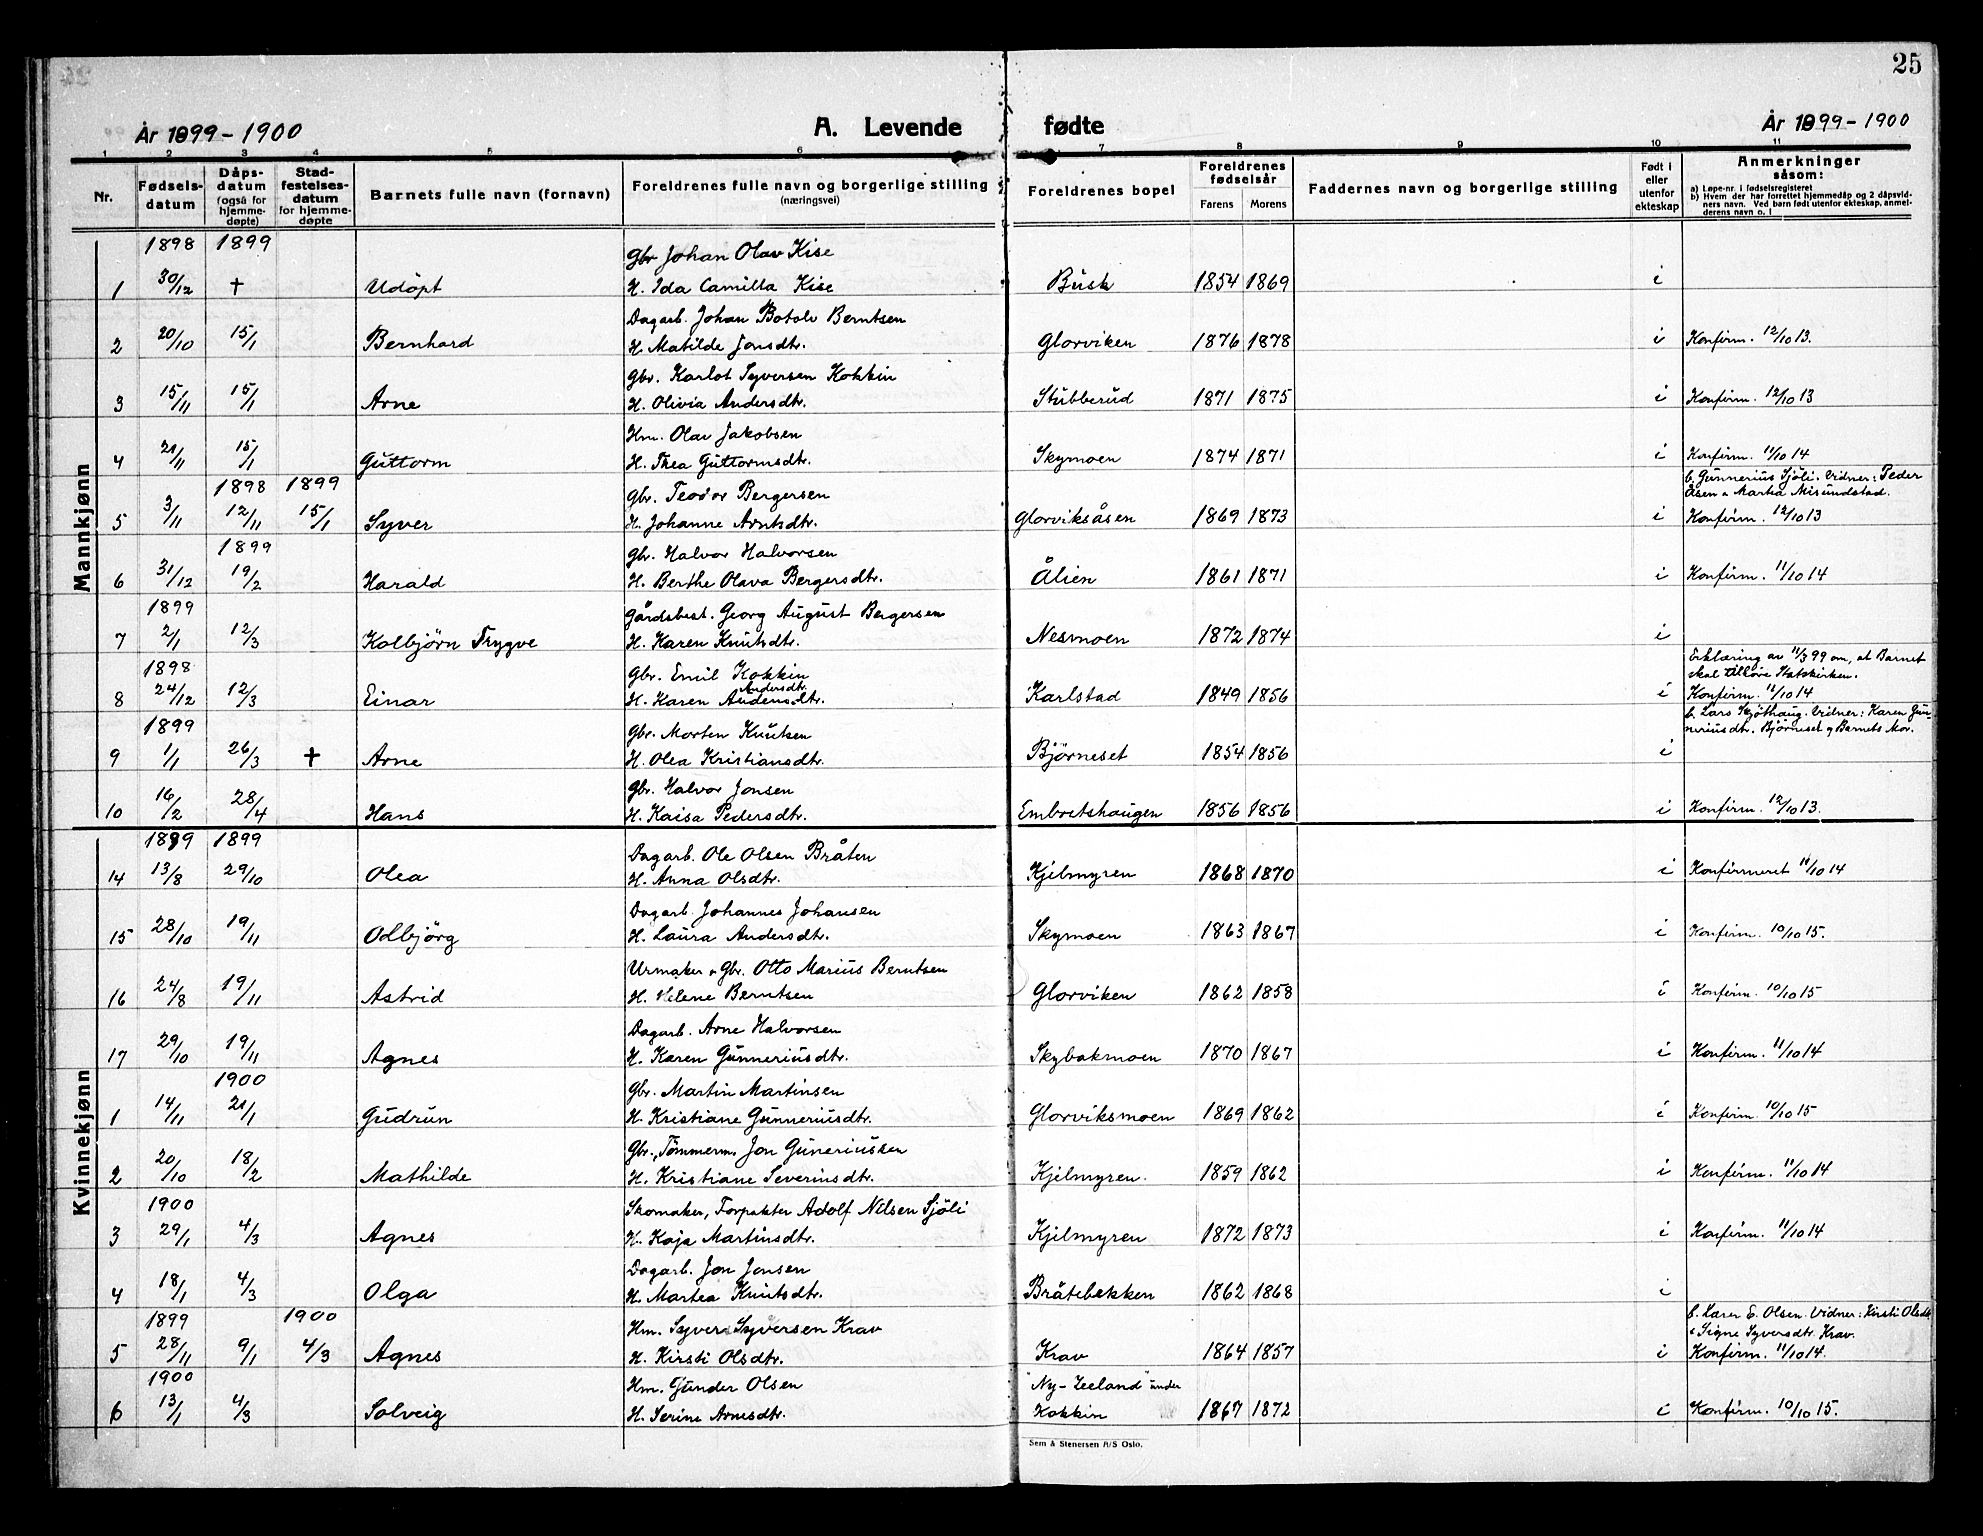 25
År 1899-1900
A. Levende
fødte
År 1899-1900
1 2 3 4 5 6 7 8 9 10 11
Nr.
Fødsels-
datum
Dåps-
datum
(også for
hjemme-
døpte)
Stad-
festelses-
datum
for hjemme-
døpte
Barnets fulle navn (fornavn)
Foreldrenes fulle navn og borgerlige stilling
(næringsvei)
Foreldrenes bopel
Foreldrenes
fødselsår
Farens Morens
Faddernes navn og borgerlige stilling
Født i
eller
utenfor
ekteskap
Anmerkninger
såsom:
a) Løpe-nr. i fødselsregisteret
b) Hvem der har forrettet hjemmedåp og 2 dåpsvid-
ners navn. Ved barn født utenfor ekteskap, anmel-
derens navn o. l.
Mannkjønn
1898 1899 Gbr Johan Olav Kise
1 30/12 † Udöpt H. Ida Camilla Kise Busk 1854 1869 i
Dagarb. Johan Botolv Berntsen
2 20/10 15/1 Bernhard H. Matilde Jonsdtr. Glorviken 1876 1878 i Konfirm. 12/10 13.
Gbr. Karlot Syversen Kokkin
3 15/11 15/1 Arne H. Olivia Andersdtr. Stubberud 1871 1875 i Konfirm. 12/10 13
Hm. Olav Jakobsen
4 21/11 15/1 Guttorm H. Thea Guttormsdtr. Skymoen 1874 1871 i Konfirm. 11/10 14
1898 1899 Gbr. Teodor Bergersen b. Gunnerius Sjöli. Vidner: Peder
Åsen & Martia Misundstad.
5 3/11 12/11 15/1 Syver H. Johanne Arntsdtr. Glorviksåsen 1869 1873 i Konfirm. 12/10 13
1899 Gbr. Halvor Halvorsen
6 31/12 19/2 Harald H. Berthe Olava Bergersdtr. Ålien 1861 1871 i Konfirm. 11/10 14
1899 Gårdsbest. Georg August Bergersen
7 2/1 12/3 Kolbjörn Trygve H. Karen Knutsdtr. Nesmoen 1872 1874 i
1898 Gbr. Emil Kokkin Erklæring av 11/3 99 om, at Barnet
skal tilhöre Statskirken.
Andersdtr.
8 24/12 12/3 Einar H. Karen Andersdtr. Karlstad 1849 1856 i Konfirm. 12/10 14
1899 Gbr. Morten Knutsen b. Lars Skjöthaug. Vidner: Karen Gun-
neriusdtr. Björneset og Barnets Mor.
9 1/1 26/3 † Arne H. Olea Kristiansdtr. Björneset 1854 1856 i
Gbr. Halvor Jonsen
10 16/2 28/4 Hans H. Kaisa Pedersdtr. Embretshaugen 1856 1856 i Konfirm. 12/10 13.
Kvinnekjønn
1899 1899 Dagarb. Ole Olsen Bråten
14 13/8 29/10 Olea H. Anna Olsdtr. Kjelmyren 1868 1870 i Konfirmeret 11/10 14
Dagarb. Johannes Johansen
15 28/10 19/11 Odbjörg H. Laura Andersdtr. Skymoen 1863 1867 i Konfirm. 10/10 15.
Urmaker & Gbr. Otto Marius Berntsen
16 24/8 19/11 Astrid H. Helene Berntsen Glorviken 1862 1858 i Konfirm. 10/10 15
Dagarb. Arne Halvorsen
17 29/10 19/11 Agnes H. Karen Gunneriusdtr. Skybakmoen 1870 1867 i Konfirm. 11/10 14
1900 Gbr. Martin Martinsen
1 14/11 21/1 Gudrun H. Kristiane Gunneriusdtr. Glorviksmoen 1869 1862 i Konfirm. 10/10 15
Gbr., Tömmerm. Jon Guneriussen
2 20/10 18/2 Mathilde H. Kristiane Severinsdtr. Kjelmyren. 1859 1862 i Konfirm. 11/10 14
1900 Skomaker, Forpakter Adolf Nilsen Sjöli
3 29/1 4/3 Agnes H. Kaja Martinsdtr. Kjelmyren 1872 1873 i Konfirm. 11/10 14
Dagarb. Jon Jonsen
4 18/1 4/3 Olga H. Martea Knutsdtr. Bråtebekken 1862 1868 i
1899 1900 Hm. Syver Syversen Krav b. Karen E. Olsen. Vidner: Kirsti Olsdtr
& Signe Syversdtr. Krav.
5 28/11 9/1 4/3 Agnes H. Kirsti Olsdtr. Krav 1864 1857 i Konfirm. 11/10 14.
1900 Hm. Gunder Olsen "Ny-Zeeland" under
6 13/1 4/3 Solveig H. Serine Arnesdtr. Kokkin 1867 1872 i Konfirm. 10/10 15.
Sem & Stenersen A/S Oslo.